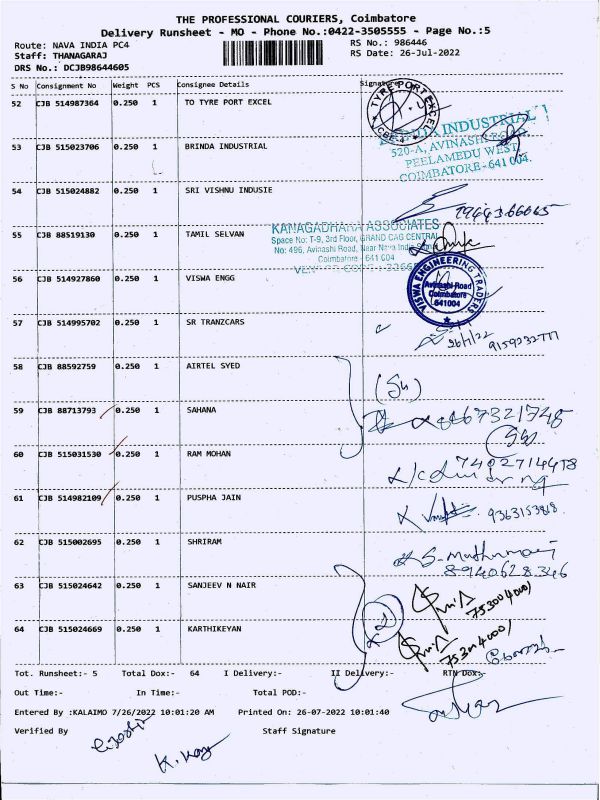 THE PROFESSIONAL COURIERS, Coimbatore
Delivery Runsheet - MO - Phone No.:0422-3505555 - Page No.:5
Route: NAVA INDIA PC4
RS No.: 986446
Staff: THANAGARAJ
RS Date: 26-Jul-2022
DRS No.: DCJB98644605
S No Consignment No Weight PCS Consignee Details Signature
52 CJB 514987364 0.250 1 TO TYRE PORT EXCEL
TYRE PORT EXCEL
CBE-4
INDUSTRIAL
53 CJB 515023706 0.250 1 BRINDA INDUSTRIAL
520-A, AVINASHI ROAD
PEELAMEDU WEST,
COIMBATORE-641 004.
54 CJB 515024882 0.250 1 SRI VISHNU INDUSIE
KANAGADHARA ASSOCIATES
55 CJB 88519130 0.250 1 TAMIL SELVAN
Space No: T-9, 3rd Floor, GRAND CAG CENTRAL
No: 496, Avinashi Road, Near Nava India
Coimbatore - 641 004
56 CJB 514927860 0.250 1 VISWA ENGG
VISWA ENGINEERING TRADERS
Avinashi Road
Coimbatore
641004
57 CJB 514995702 0.250 1 SR TRANZCARS
26/7/22
9159232777
58 CJB 88592759 0.250 1 AIRTEL SYED
59 CJB 88713793 0.250 1 SAHANA
60 CJB 515031530 0.250 1 RAM MOHAN
61 CJB 514982109 0.250 1 PUSPHA JAIN
9363153818
62 CJB 515002695 0.250 1 SHRIRAM
8940628346
63 CJB 515024642 0.250 1 SANJEEV N NAIR
7530040001
64 CJB 515024669 0.250 1 KARTHIKEYAN
7530040001
Tot. Runsheet:- 5 Total Dox:- 64 I Delivery:- II Delivery:- RTN Dox:-
Out Time:- In Time:- Total POD:-
Entered By :KALAIMO 7/26/2022 10:01:20 AM Printed On: 26-07-2022 10:01:40
Verified By Staff Signature